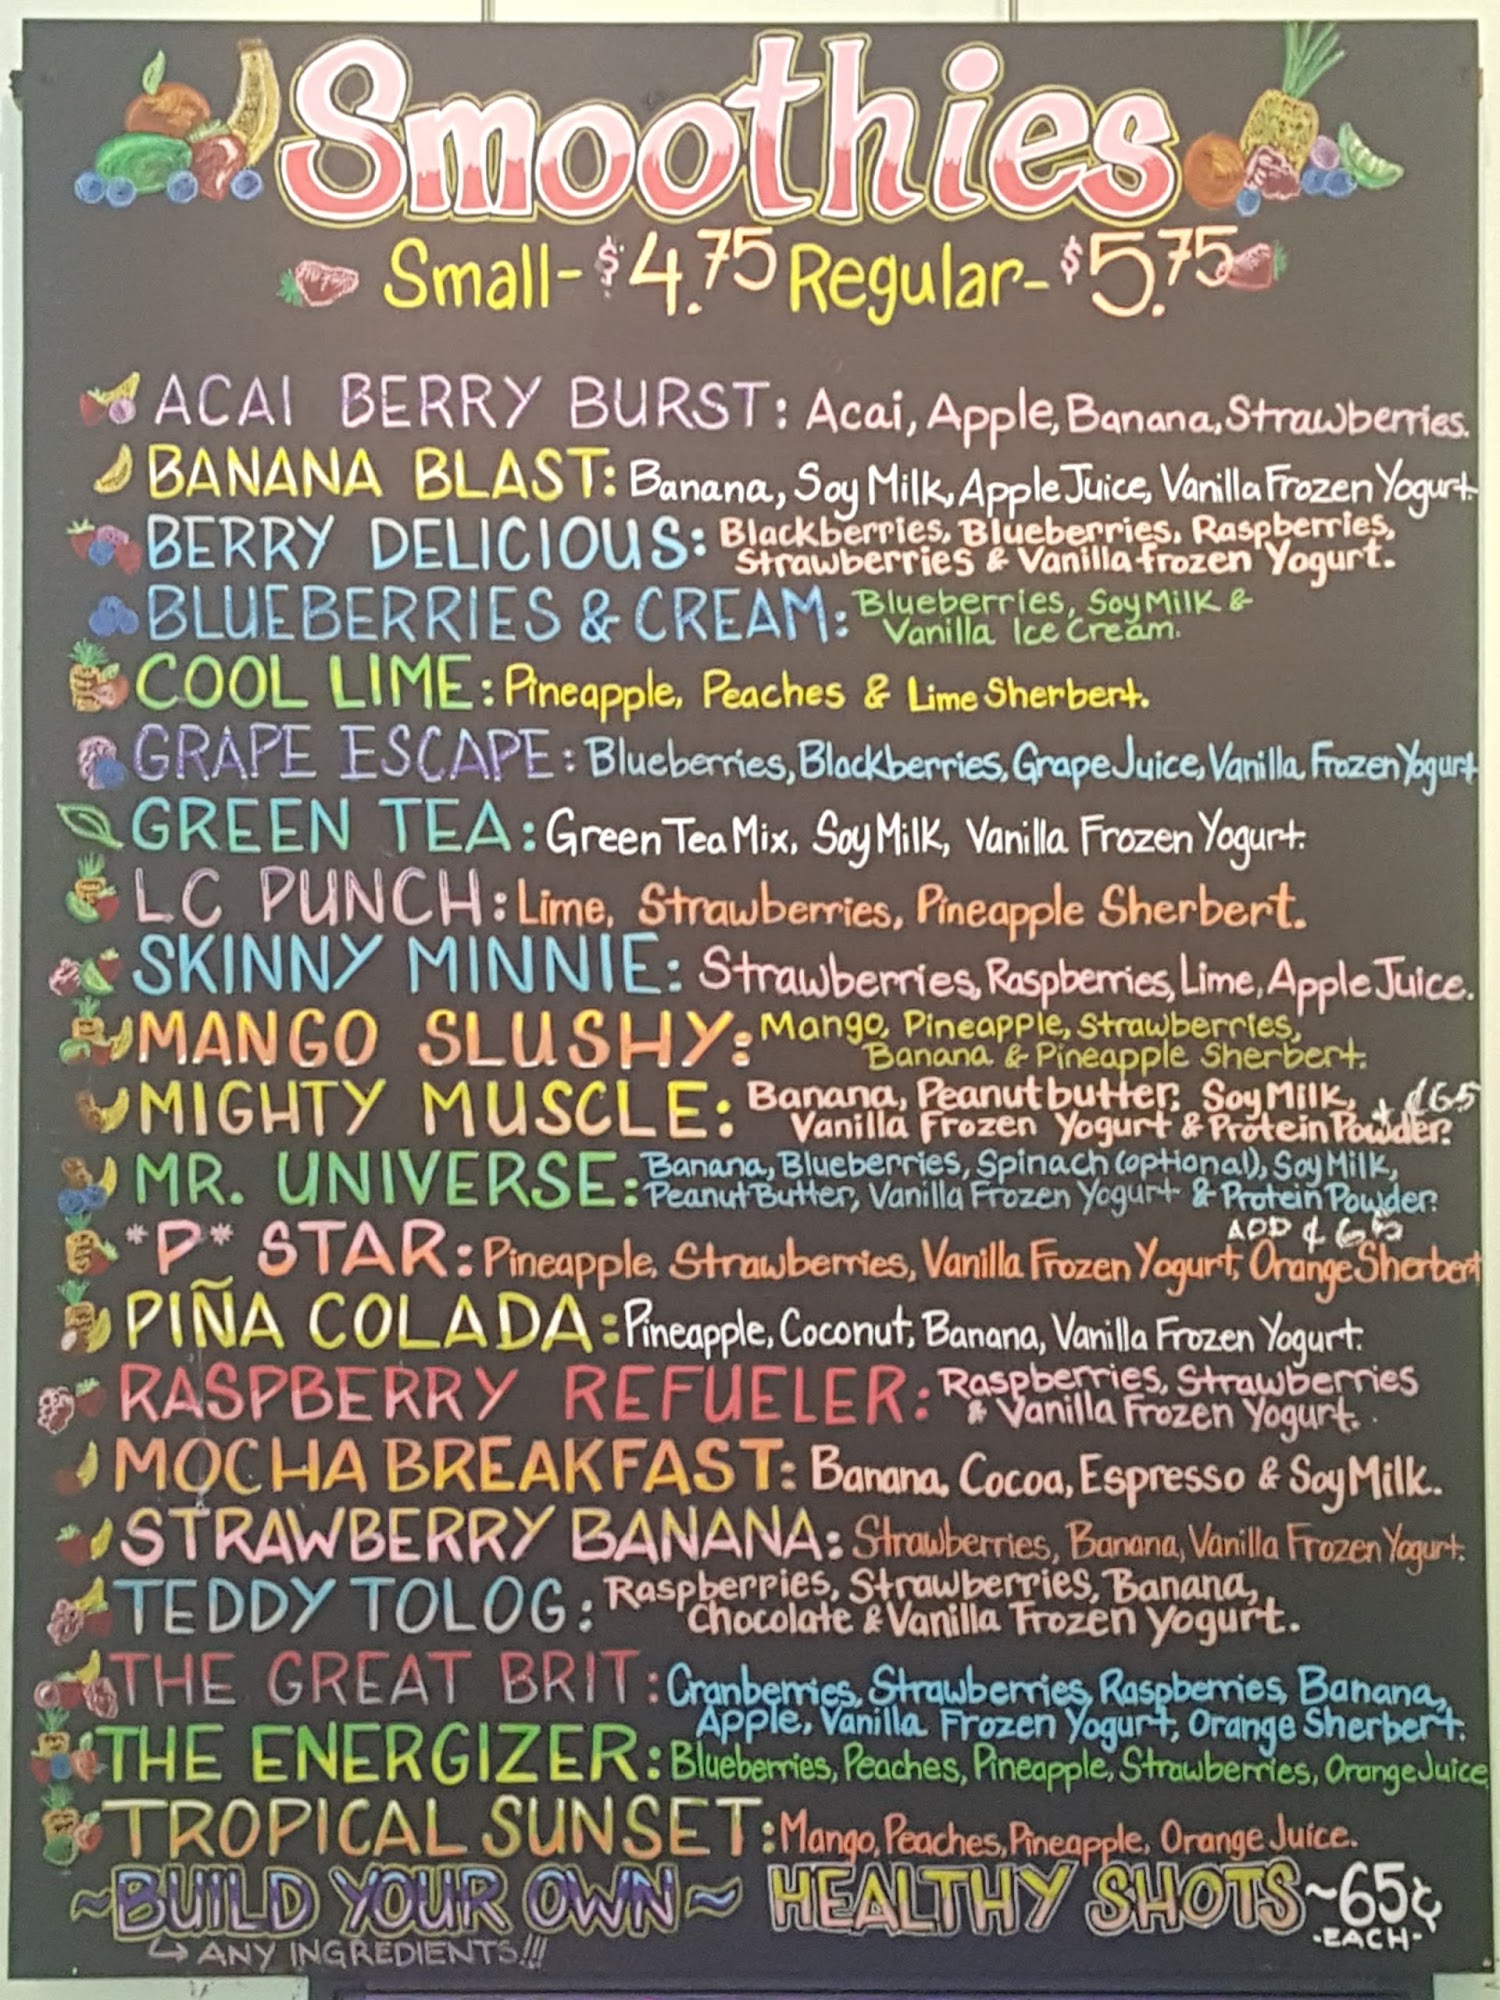 Smoothies
Small- $4.75 Regular- $5.75
ACAI BERRY BURST: Acai, Apple, Banana, Strawberries.
BANANA BLAST: Banana, Soy Milk, Apple Juice, Vanilla Frozen Yogurt
BERRY DELICIOUS: Blackberries, Blueberries, Raspberries,
Strawberries & Vanilla frozen Yogurt.
BLUEBERRIES & CREAM: Blueberries, Soy Milk &
Vanilla Ice Cream.
COOL LIME: Pineapple, Peaches & Lime Sherbert.
GRAPE ESCAPE: Blueberries, Blackberries, Grape Juice, Vanilla Frozen Yogurt
GREEN TEA: Green Tea Mix, Soy Milk, Vanilla Frozen Yogurt.
LC PUNCH: Lime, Strawberries, Pineapple Sherbert.
SKINNY MINNIE: Strawberries, Raspberries, Lime, Apple Juice.
MANGO SLUSHY: Mango, Pineapple, Strawberries,
Banana & Pineapple Sherbert.
MIGHTY MUSCLE: Banana, Peanut butter, Soy Milk, + ¢65
Vanilla Frozen Yogurt & Protein Powder.
MR. UNIVERSE: Banana, Blueberries, Spinach (optional), Soy Milk,
Peanut Butter, Vanilla Frozen Yogurt & Protein Powder.
ADD ¢ 65
*P* STAR: Pineapple, Strawberries, Vanilla Frozen Yogurt, Orange Sherbert
PIÑA COLADA: Pineapple, Coconut, Banana, Vanilla Frozen Yogurt.
RASPBERRY REFUELER: Raspberries, Strawberries
& Vanilla Frozen Yogurt.
MOCHA BREAKFAST: Banana, Cocoa, Espresso & Soy Milk.
STRAWBERRY BANANA: Strawberries, Banana, Vanilla Frozen Yogurt.
TEDDY TOLOG: Raspberries, Strawberries, Banana,
Chocolate & Vanilla Frozen Yogurt.
THE GREAT BRIT: Cranberries, Strawberries, Raspberries, Banana,
Apple, Vanilla Frozen Yogurt, Orange Sherbert.
THE ENERGIZER: Blueberries, Peaches, Pineapple, Strawberries, Orange Juice
TROPICAL SUNSET: Mango, Peaches, Pineapple, Orange Juice.
~BUILD YOUR OWN~ HEALTHY SHOTS ~65¢
↳ ANY INGREDIENTS!!! -EACH-